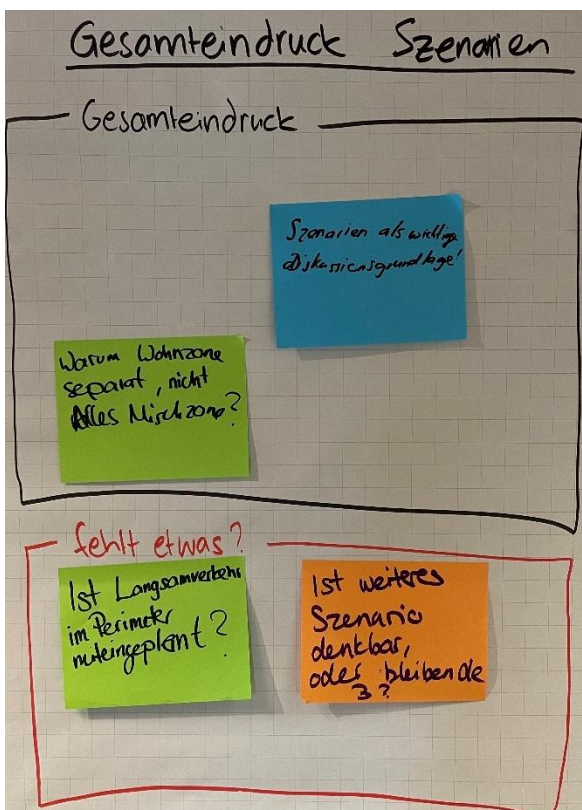 Gesamteindruck Szenarien
Gesamteindruck
Szenarien als wichtige
Diskussionsgrundlage!
Warum Wohnzone
separat, nicht
Alles Mischzone?
fehlt etwas?
Ist Langsamverkehr
im Perimeter
miteingeplant?
Ist weiteres
Szenario
denkbar,
oder bleiben die
3?